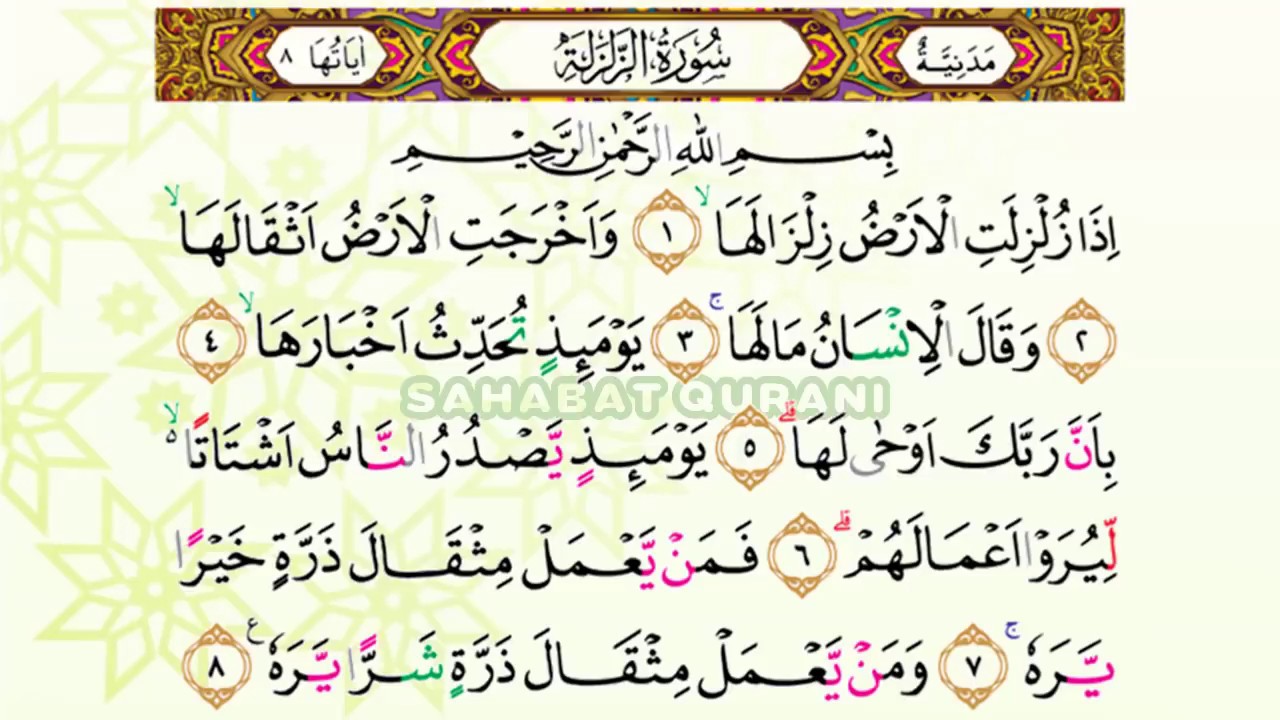 مَدَنِيَّةٌ سُوْرَةُ الزَّلْزَلَةِ اٰيَاتُهَا ٨
بِسْمِ اللّٰهِ الرَّحْمٰنِ الرَّحِيْمِ
اِذَا زُلْزِلَتِ الْاَرْضُ زِلْزَالَهَاۙ ١ وَاَخْرَجَتِ الْاَرْضُ اَثْقَالَهَاۙ
٢ وَقَالَ الْاِنْسَانُ مَا لَهَاۚ ٣ يَوْمَئِذٍ تُحَدِّثُ اَخْبَارَهَاۙ ٤
SAHABAT QURANI
بِاَنَّ رَبَّكَ اَوْحٰى لَهَاۗ ٥ يَوْمَئِذٍ يَّصْدُرُ النَّاسُ اَشْتَاتًا ەۙ
لِّيُرَوْا اَعْمَالَهُمْۗ ٦ فَمَنْ يَّعْمَلْ مِثْقَالَ ذَرَّةٍ خَيْرًا
يَّرَهٗۚ ٧ وَمَنْ يَّعْمَلْ مِثْقَالَ ذَرَّةٍ شَرًّا يَّرَهٗ ࣖ ٨